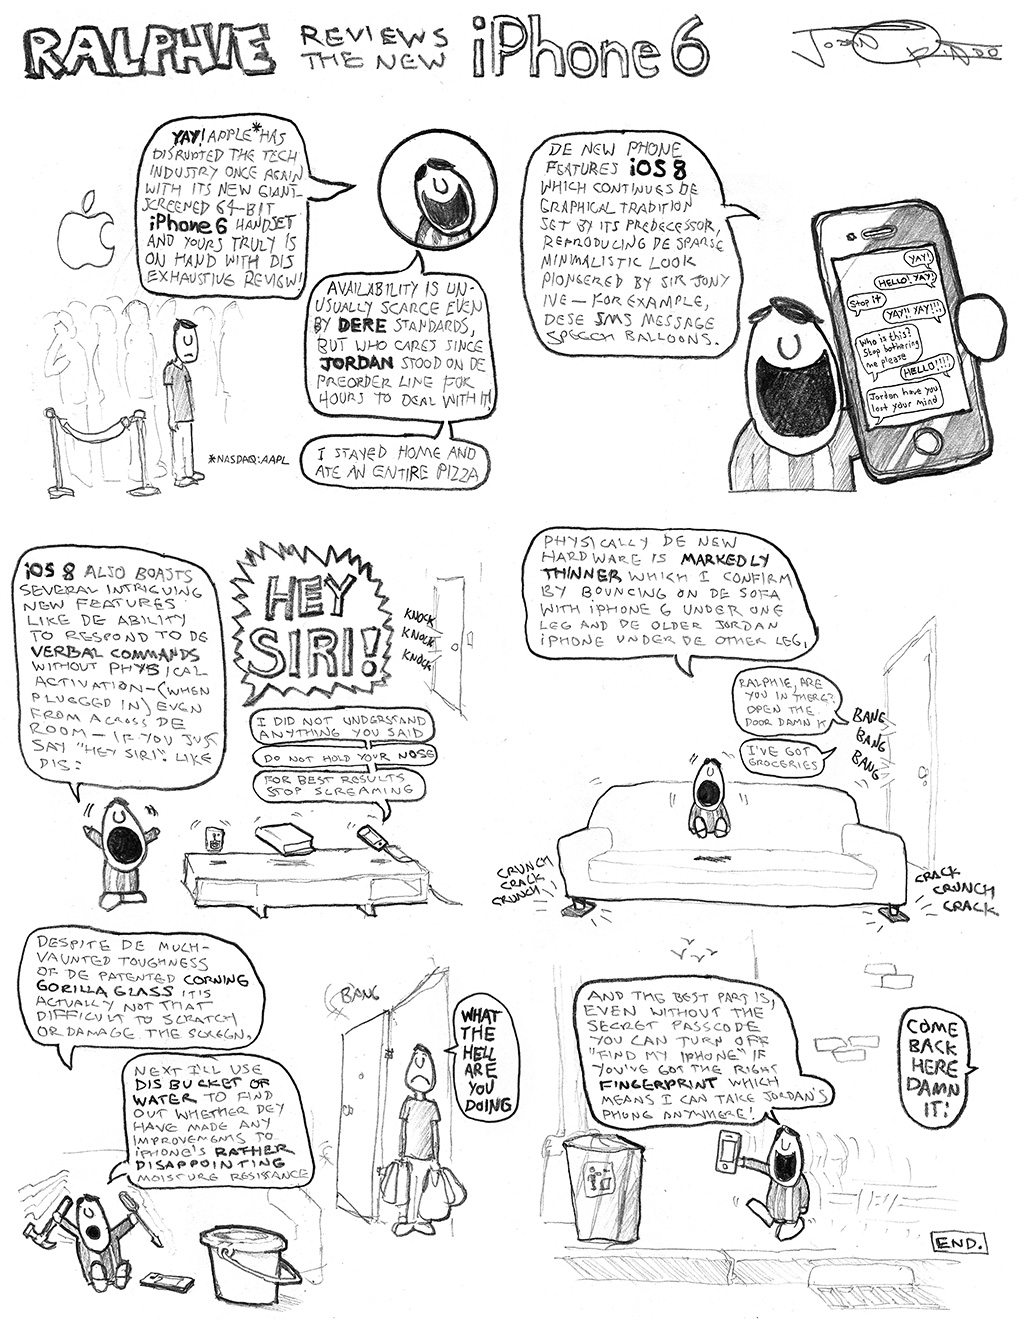 RALPHIE REVIEWS THE NEW iPhone 6
JORDAN
YAY! APPLE* HAS
DISRUPTED THE TECH
INDUSTRY ONCE AGAIN
WITH ITS NEW GIANT-
SCREENED 64-BIT
iPhone 6 HANDSET
AND YOURS TRULY IS
ON HAND WITH DIS
EXHAUSTIVE REVIEW!
AVAILABILITY IS UN-
USUALLY SCARCE EVEN
BY DERE STANDARDS,
BUT WHO CARES SINCE
JORDAN STOOD ON DE
PREORDER LINE FOR
HOURS TO DEAL WITH IT!
I STAYED HOME AND
ATE AN ENTIRE PIZZA
*NASDAQ:AAPL
DE NEW PHONE
FEATURES iOS 8
WHICH CONTINUES DE
GRAPHICAL TRADITION
SET BY ITS PREDECESSOR,
REPRODUCING DE SPARSE
MINIMALISTIC LOOK
PIONEERED BY SIR JONY
IVE — FOR EXAMPLE,
DESE SMS MESSAGE
SPEECH BALLOONS.
YAY!
HELLO! YAY!
Stop it
YAY!! YAY!!!
Who is this?
Stop bothering
me please
HELLO!!!!
Jordan have you
lost your mind
iOS 8 ALSO BOASTS
SEVERAL INTRIGUING
NEW FEATURES
LIKE DE ABILITY
TO RESPOND TO DE
VERBAL COMMANDS
WITHOUT PHYSICAL
ACTIVATION—(WHEN
PLUGGED IN) EVEN
FROM ACROSS DE
ROOM — IF YOU JUST
SAY "HEY SIRI". LIKE
DIS:
HEY
SIRI!
KNOCK
KNOCK
KNOCK
I DID NOT UNDERSTAND
ANYTHING YOU SAID
DO NOT HOLD YOUR NOSE
FOR BEST RESULTS
STOP SCREAMING
PHYSICALLY DE NEW
HARDWARE IS MARKEDLY
THINNER WHICH I CONFIRM
BY BOUNCING ON DE SOFA
WITH iPHONE 6 UNDER ONE
LEG AND DE OLDER JORDAN
iPHONE UNDER DE OTHER LEG.
RALPHIE, ARE
YOU IN THERE?
OPEN THE
DOOR DAMN IT
I'VE GOT
GROCERIES
BANG
BANG
BANG
CRUNCH
CRACK
CRUNCH
CRACK
CRUNCH
CRACK
DESPITE DE MUCH-
VAUNTED TOUGHNESS
OF DE PATENTED CORNING
GORILLA GLASS IT'S
ACTUALLY NOT THAT
DIFFICULT TO SCRATCH
OR DAMAGE THE SCREEN.
NEXT I'LL USE
DIS BUCKET OF
WATER TO FIND
OUT WHETHER DEY
HAVE MADE ANY
IMPROVEMENTS TO
iPHONE'S RATHER
DISAPPOINTING
MOISTURE RESISTANCE
BANG
WHAT
THE
HELL
ARE
YOU
DOING
AND THE BEST PART IS,
EVEN WITHOUT THE
SECRET PASSCODE
YOU CAN TURN OFF
"FIND MY IPHONE" IF
YOU'VE GOT THE RIGHT
FINGERPRINT WHICH
MEANS I CAN TAKE JORDAN'S
PHONE ANYWHERE!
COME
BACK
HERE
DAMN
IT!
END.